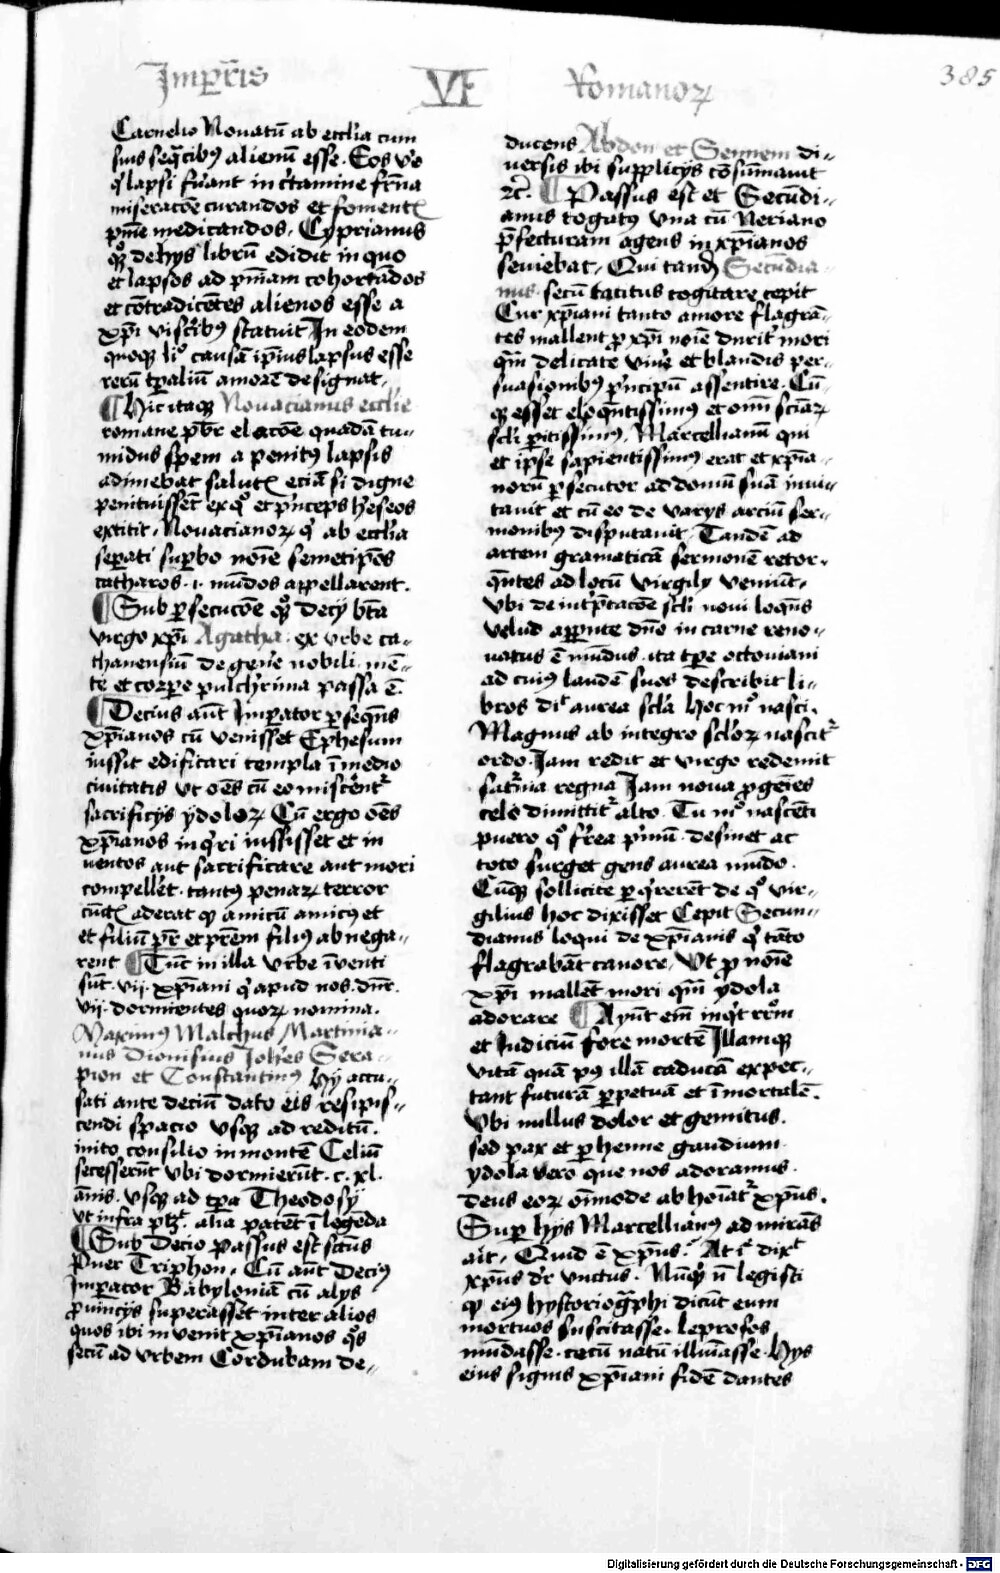 Imperis VI Romanoꝝ 385
Carnelio Nouatū ab ecclia cum
suis seq̄cibꝰ alienū esse. Eos v̓o
q̇ lapsi fuānt in c̓tamine fr̄na
miseracōe curandos et foment
pn̄ie medicandos. Cyprianus
qꝫ de hys librū edidit in quo
et lapsos ad pn̄iam cohortādos
et cōtradicētes alienos esse a
xp̄i visc̓ibꝰ statuit In eodem
quoqꝫ liº causā ip̄ius lapsus esse
rerū tp̄aliū amorē designat.
¶ Hic itaqꝫ Nouacianus ecclie
romane pb̄r elacōe quadā tu-
midus spem a penitꝰ lapsis
adimebat salut eciā si digne
penituissēt ex qº et p̓nceps h̓eseos
extitit. Nouacianoꝝ q̇ ab ecclia
sep̄ati sup̄bo noīe semetip̄os
catharos .i. mūdos appellarent.
¶ Sub p̱secucōe qꝫ Decy bt̄a
virgo xp̄i Agatha. ex vrbe ca-
thanensiū de gen̓e nobili. mē-
te et corpe pulch̓rima passa ē.
¶ Decius aūt Imp̱ator p̱seqn̄s
xp̄ianos cū venisset Ephesum
iussit edificari templa ī medio
ciuitatis vt oēs cū eo misc̓ent
sacrificijs ydoloꝝ Cū ergo oēs
xp̄ianos inq̇ri iussisset et in
uentos aut sacrificare aut mori
compell̓et. tantꝰ penaꝝ terror
cūct aderat qꝫ amicū amicꝰ et
et filiū pr̄ et pr̄em filiꝰ abnega-
rent ¶ Tūc in illa vrbe īventi
sūt .vij. xp̄iani q̇ apud nos dnr̄.
vij. dormientes quoꝝ nomina.
Maximꝰ Malchus Martinia-
nus Dionisius Joh̄es Sera-
pion et Constantinꝰ Hij accu-
sati ante deciū dato eis resipis-
cendi spacio vsqꝫ ad reditū.
inito consilio in montē Celiū
secesserūt vbi dormierūt .c. xl.
ānis. vsqꝫ ad tp̄a Theodosy
vt infra alia patēt ī legēda
¶ Sub Decio passus est scūs
Puer Triphon. Cū aūt Deciꝰ
Imp̱ator Babyloniā cū alys
ꝓuincijs superasset inter alios
quos ibi invenit xp̄ianos q̇s
secū ad vrbem Cordubam de-
ducens Abdon et Sennem di-
uersis ibi supplicijs cōsūmauit
¶ Passus est et Secūdi-
anus togatꝰ vna cū Veriano
p̄fecturam agens in xp̄ianos
seuiebat. Qui tandē Secūdia
nus. secū tacitus cogitare cepit
Cur xp̄iani tanto amore flagrā-
tes mallent ꝓ xp̄i noīe durit̓ mori
qm̄ delicate viu̓e et blandis per-
suasionibꝰ p̓ncipū assentire. Cū-
qꝫ esset eloqn̄tissimꝰ et om̄i sciaꝝ
scl̓i p̱itissimꝰ. Marcellianū qui
et ip̄se sapientissimꝰ erat et xp̄ia-
norū p̱secutor ad domū suā inui-
tauit et cū eo de varys arciū ser-
monibꝰ disputauit. Tandē ad
artem gramaticā sermonē retor-
qn̄tes ad locū Virgily veniūt.
vbi de int̓p̄tacōe scl̓i noui loqn̄s
velud apparente dn̄o in carne reno-
uatus ē mūdus. ita tp̱e octouiani
ad cuiꝰ laudē suos describit li-
bros dit aurea scl̓a hoc mº nasci.
Magnus ab integro scl̓oꝝ nascit
ordo. Jam redit et virgo redeunt
sat̓nia regna Jam noua ꝓgēies
celo dimittit alto. Tu mº nascēti
puero qº f̓rea p̓mū. desinet ac
toto surget gens aurea mūdo.
Cūqꝫ sollicite p̱q̇rerēt de qº vir-
gilius hoc dixisset Cepit Secun-
dianus loqui de xp̄ianis q̇ tāto
flagrabāt amore. Vt ꝓ noīe
xp̄i mallēt mori qm̄ ydola
adorare ¶ Ayūt em̄ inq̇t
et Iudiciū fore mortē Illamqꝫ
vitā quā pꝰ illā caducā expec-
tant futurā p̱petuā et īmortalē.
Vbi nullus dolor et gemitus.
sed pax et p̱henne gaudium
ydola vero que nos adoramus.
deus eoꝝ oīmode abhoīat xp̄nꝰ.
Sup̱ hys Marcellianꝰ admirās
ait. Quid ē xp̄us. At dixᵗ
xp̄us dr̄ vnctus. Nūqꝫ n̄ legisti
qꝫ eiꝰ hystoriogrphi dicūt eum
mortuos suscitasse. leprosos
mūdasse. cecū natū illuīasse. Hys
eius signis xp̄iani fidē dantes
Digitalisierung gefördert durch die Deutsche Forschungsgemeinschaft - DFG